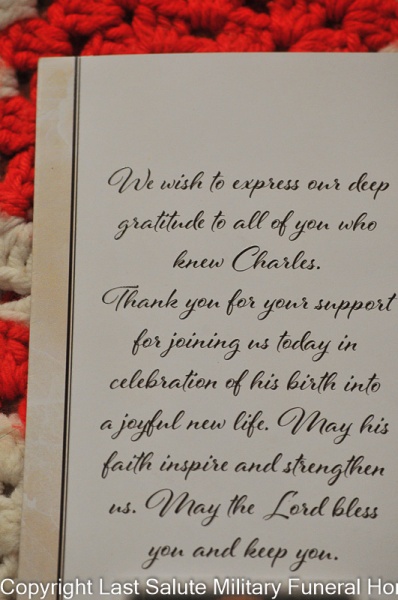 We wish to express our deep
gratitude to all of you who
knew Charles.
Thank you for your support
for joining us today in
celebration of his birth into
a joyful new life. May his
faith inspire and strengthen
us. May the Lord bless
you and keep you.
Copyright Last Salute Military Funeral Ho